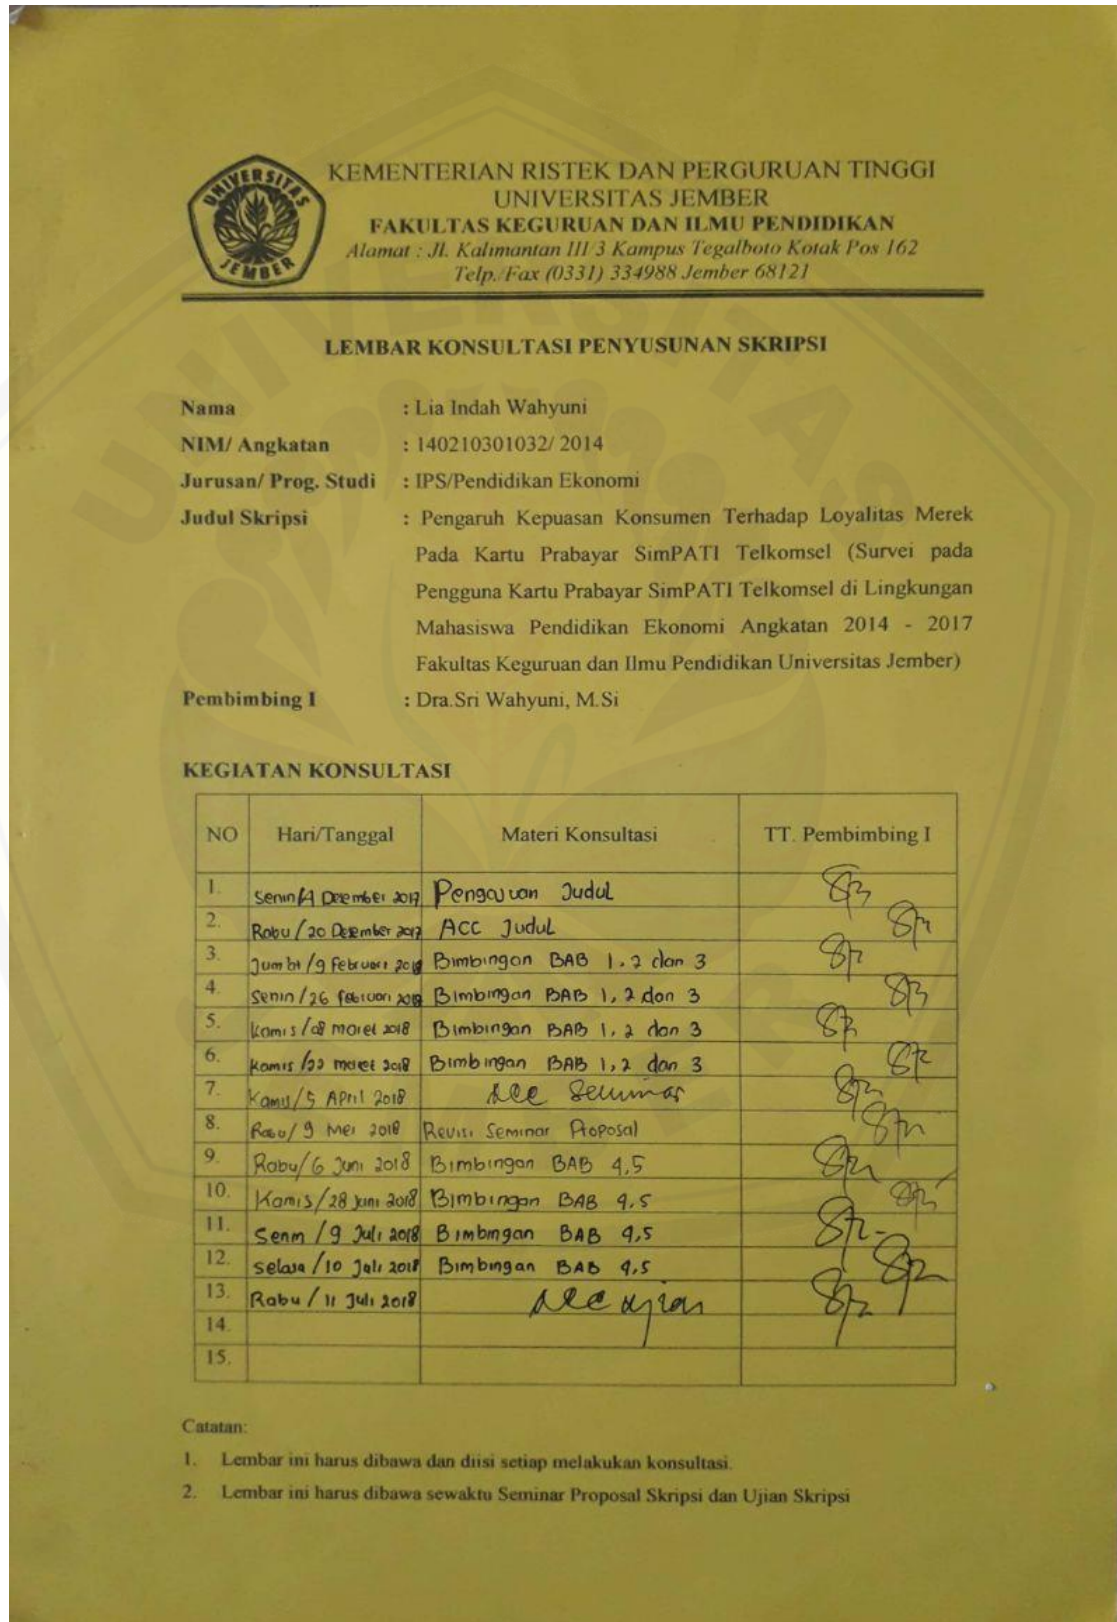 UNIVERSITAS JEMBER
KEMENTERIAN RISTEK DAN PERGURUAN TINGGI
UNIVERSITAS JEMBER
FAKULTAS KEGURUAN DAN ILMU PENDIDIKAN
Alamat : Jl. Kalimantan III/3 Kampus Tegalboto Kotak Pos 162
Telp./Fax (0331) 334988 Jember 68121
LEMBAR KONSULTASI PENYUSUNAN SKRIPSI
Nama : Lia Indah Wahyuni
NIM/ Angkatan : 140210301032/ 2014
Jurusan/ Prog. Studi : IPS/Pendidikan Ekonomi
Judul Skripsi : Pengaruh Kepuasan Konsumen Terhadap Loyalitas Merek
Pada Kartu Prabayar SimPATI Telkomsel (Survei pada
Pengguna Kartu Prabayar SimPATI Telkomsel di Lingkungan
Mahasiswa Pendidikan Ekonomi Angkatan 2014 - 2017
Fakultas Keguruan dan Ilmu Pendidikan Universitas Jember)
Pembimbing I : Dra.Sri Wahyuni, M.Si
KEGIATAN KONSULTASI
NO Hari/Tanggal Materi Konsultasi TT. Pembimbing I
1. Senin/ Desember 2017 Pengajuan Judul
2. Rabu/20 Desember 2017 ACC Judul
3. Jumat/9 Februari 2018 Bimbingan BAB 1, 2 dan 3
4. Senin/26 Februari 2018 Bimbingan BAB 1, 2 dan 3
5. Kamis/08 Maret 2018 Bimbingan BAB 1, 2 dan 3
6. Kamis/22 maret 2018 Bimbingan BAB 1, 2 dan 3
7. Kamis/5 April 2018 Acc Seminar
8. Rabu/9 Mei 2018 Revisi Seminar Proposal
9. Rabu/6 Juni 2018 Bimbingan BAB 4,5
10. Kamis/28 Juni 2018 Bimbingan BAB 4,5
11. Senin/9 Juli 2018 Bimbingan BAB 4,5
12. Selasa/10 Juli 2018 Bimbingan BAB 4,5
13. Rabu/11 Juli 2018 Acc ujian
14.
15.
Catatan:
1. Lembar ini harus dibawa dan diisi setiap melakukan konsultasi.
2. Lembar ini harus dibawa sewaktu Seminar Proposal Skripsi dan Ujian Skripsi